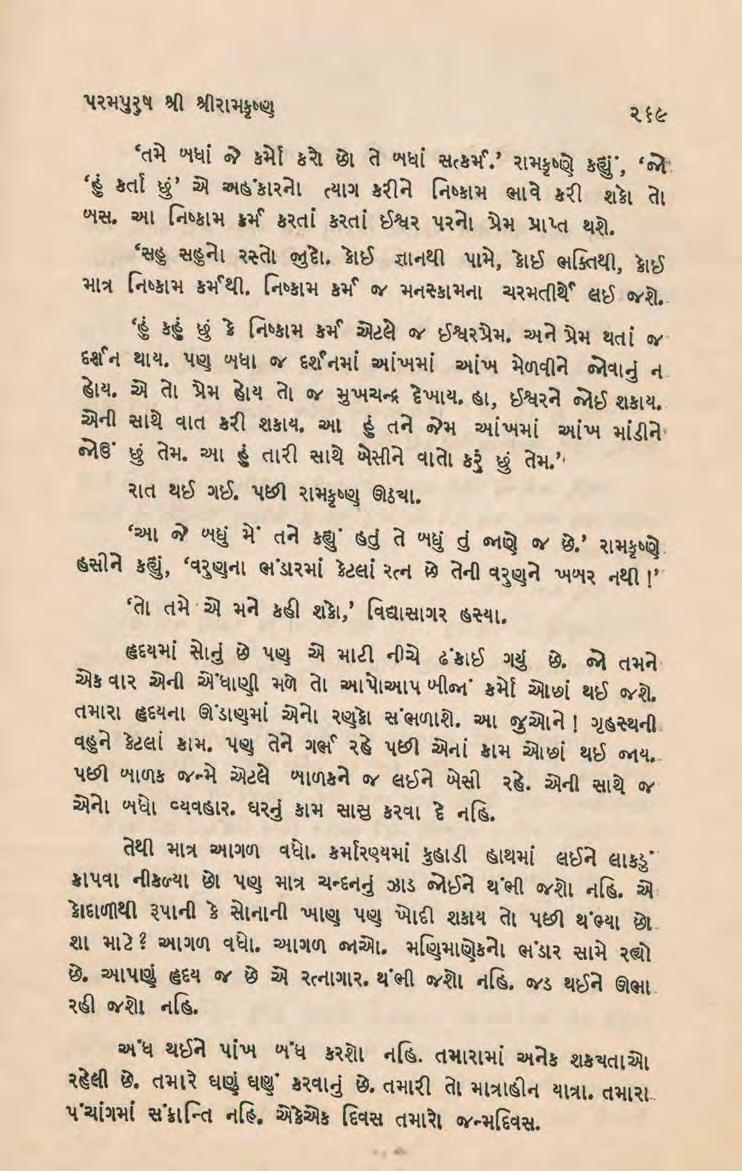 પરમપુરુષ શ્રી શ્રીરામકૃષ્ણ
૨૬૯
‘તમે બધાં જે કર્મો કરો છો તે બધાં સત્કર્મ.’ રામકૃષ્ણે કહ્યું, ‘જો
‘હું કર્તા છું’ એ અહંકારનો ત્યાગ કરીને નિષ્કામ ભાવે કરી શકો તો
બસ. આ નિષ્કામ કર્મ કરતાં કરતાં ઈશ્વર પરનો પ્રેમ પ્રાપ્ત થશે.
‘સહુ સહુનો રસ્તો જુદો. કોઈ જ્ઞાનથી પામે, કોઈ ભક્તિથી, કોઈ
માત્ર નિષ્કામ કર્મથી. નિષ્કામ કર્મ જ મનસ્કામના ચરમતીર્થે લઈ જશે.
‘હું કહું છું કે નિષ્કામ કર્મ એટલે જ ઈશ્વરપ્રેમ. અને પ્રેમ થતાં જ
દર્શન થાય. પણ બધા જ દર્શનમાં આંખમાં આંખ મેળવીને જોવાનું ન
હોય. એ તો પ્રેમ હોય તો જ મુખચન્દ્ર દેખાય. હા, ઈશ્વરને જોઈ શકાય.
એની સાથે વાત કરી શકાય. આ હું તને જેમ આંખમાં આંખ માંડીને
જોઉં છું તેમ. આ હું તારી સાથે બેસીને વાતો કરું છું તેમ.’
રાત થઈ ગઈ. પછી રામકૃષ્ણ ઊઠ્યા.
‘આ જે બધું મેં તને કહ્યું હતું તે બધું તું જાણે જ છે.’ રામકૃષ્ણે
હસીને કહ્યું, ‘વરુણના ભંડારમાં કેટલાં રત્ન છે તેની વરુણને ખબર નથી !’
‘તો તમે એ મને કહી શકો,’ વિદ્યાસાગર હસ્યા.
હૃદયમાં સોનું છે પણ એ માટી નીચે ઢંકાઈ ગયું છે. જો તમને
એક વાર એની એંધાણી મળે તો આપોઆપ બીજાં કર્મો ઓછાં થઈ જશે.
તમારા હૃદયના ઊંડાણમાં એનો રણકો સંભળાશે. આ જુઓને ! ગૃહસ્થની
વહુને કેટલાં કામ. પણ તેને ગર્ભ રહે પછી એનાં કામ ઓછાં થઈ જાય.
પછી બાળક જન્મે એટલે બાળકને જ લઈને બેસી રહે. એની સાથે જ
એનો બધો વ્યવહાર. ઘરનું કામ સાસુ કરવા દે નહિ.
તેથી માત્ર આગળ વધો. કર્મારણ્યમાં કુહાડી હાથમાં લઈને લાકડું
કાપવા નીકળ્યા છો પણ માત્ર ચન્દનનું ઝાડ જોઈને થંભી જશો નહિ. એ
કોદાળીથી રૂપાની કે સોનાની ખાણ પણ ખોદી શકાય તો પછી થંભ્યા છો
શા માટે ? આગળ વધો. આગળ જાઓ. મણિમાણેકનો ભંડાર સામે રહ્યો
છે. આપણું હૃદય જ છે એ રત્નાગાર. થંભી જશો નહિ. જડ થઈને ઊભા
રહી જશો નહિ.
અંધ થઈને પાંખ બંધ કરશો નહિ. તમારામાં અનેક શક્યતાઓ
રહેલી છે. તમારે ઘણું ઘણું કરવાનું છે. તમારી તો માત્રાહીન યાત્રા. તમારા
પંચાંગમાં સંક્રાન્તિ નહિ. એકેએક દિવસ તમારો જન્મદિવસ.